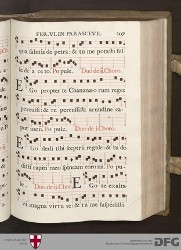 FER. VI. IN PARASCEVE. 207
qua salutis de petra: & tu me potasti fel-
le & a ceto. Popule. Duo de ij. Choro.
EGo propter te Chananæorum reges
percussi: & tu percussisti arundine ca-
put meum. Popule. Duo de j. Choro.
EGo dedi tibi sceptrum regale: & tu de-
disti capiti meo spineam coronam. Popule.
Duo de ij. Choro. EGo te exalta-
vi magna virtute: & tu me suspendisti
DFG